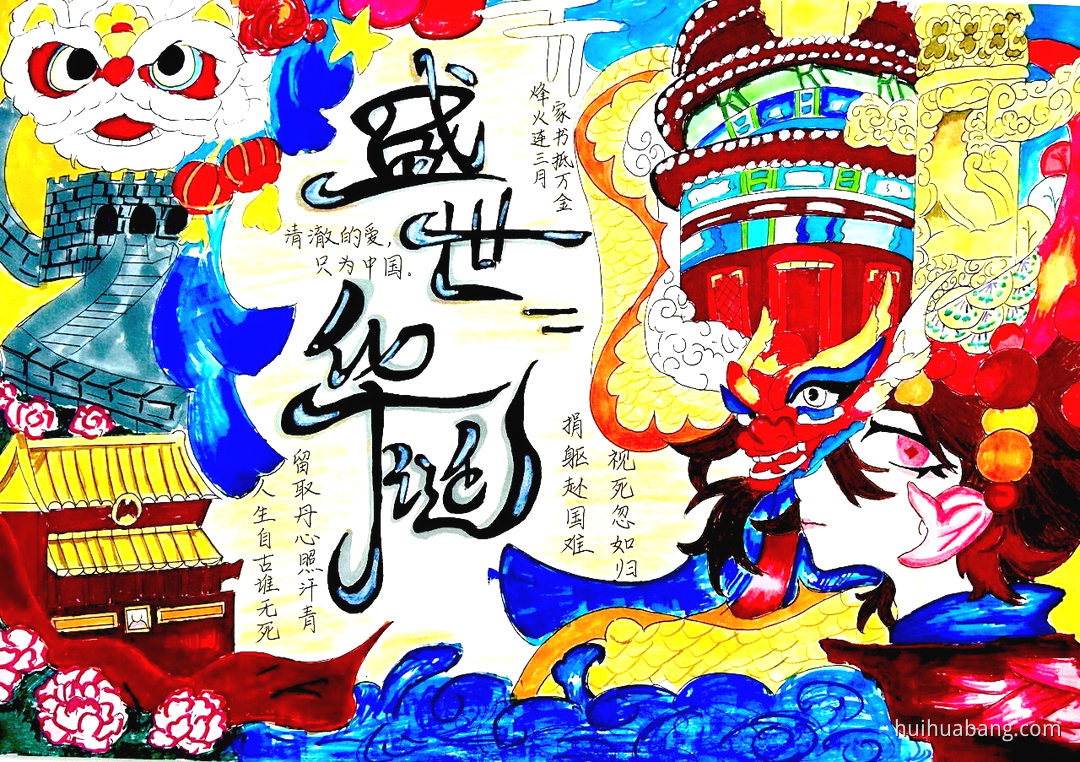 盛世华诞
烽火连三月
家书抵万金
清澈的爱，
只为中国。
人生自古谁无死
留取丹心照汗青
捐躯赴国难
视死忽如归
huihuabang.com